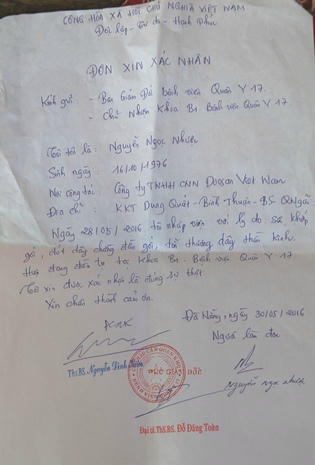 CỘNG HÒA XÃ HỘI CHỦ NGHĨA VIỆT NAM
Độc lập - Tự do - Hạnh Phúc
ĐƠN XIN XÁC NHẬN
Kính gửi: - Ban Giám Đốc bệnh viện Quân Y 17.
- Chủ Nhiệm Khoa B1 Bệnh viện Quân Y 17.
Tôi tên là: Nguyễn Ngọc
Sinh ngày: 16/10/1976
Nơi công tác: Công ty TNHH CNN Doosan Việt Nam
Địa chỉ: KKT Dung Quất - Bình Thuận - BS - QNgãi
Ngày 28/05/2016 tôi nhập viện với lý do sai khớp
gối, đứt dây chằng đầu gối, tổn thương dây thần kinh.
Hiện đang điều trị tại Khoa B1 - Bệnh viện Quân Y 17
Tôi xin được xác nhận là đúng sự thật.
Xin chân thành cảm ơn.
Đà Nẵng, ngày 30/05/2016
Người làm đơn
ThS.BS. Nguyễn Đình
PHÓ GIÁM ĐỐC
Nguyễn Ngọc
Đại tá ThS.BS. Đỗ Đăng Toàn